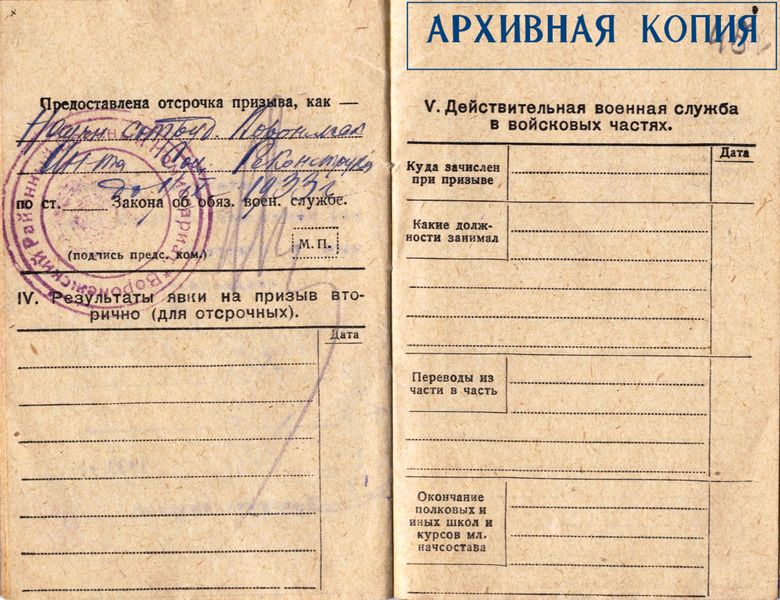 Предоставлена отсрочка призыва, как —
Научн сотруд. Воронежск
Ин-та Соц. Реконструк
до 1933 г
по ст. Закона об обяз. воен. службе.
(подпись предс. ком.)
М.П.
Воронежский Район
IV. Результаты явки на призыв вто-
рично (для отсрочных).
Дата
АРХИВНАЯ КОПИЯ
V. Действительная военная служба
в войсковых частях.
Дата
Куда зачислен
при призыве
Какие долж-
ности занимал
Переводы из
части в часть
Окончание
полковых и
иных школ и
курсов мл.
начсостава